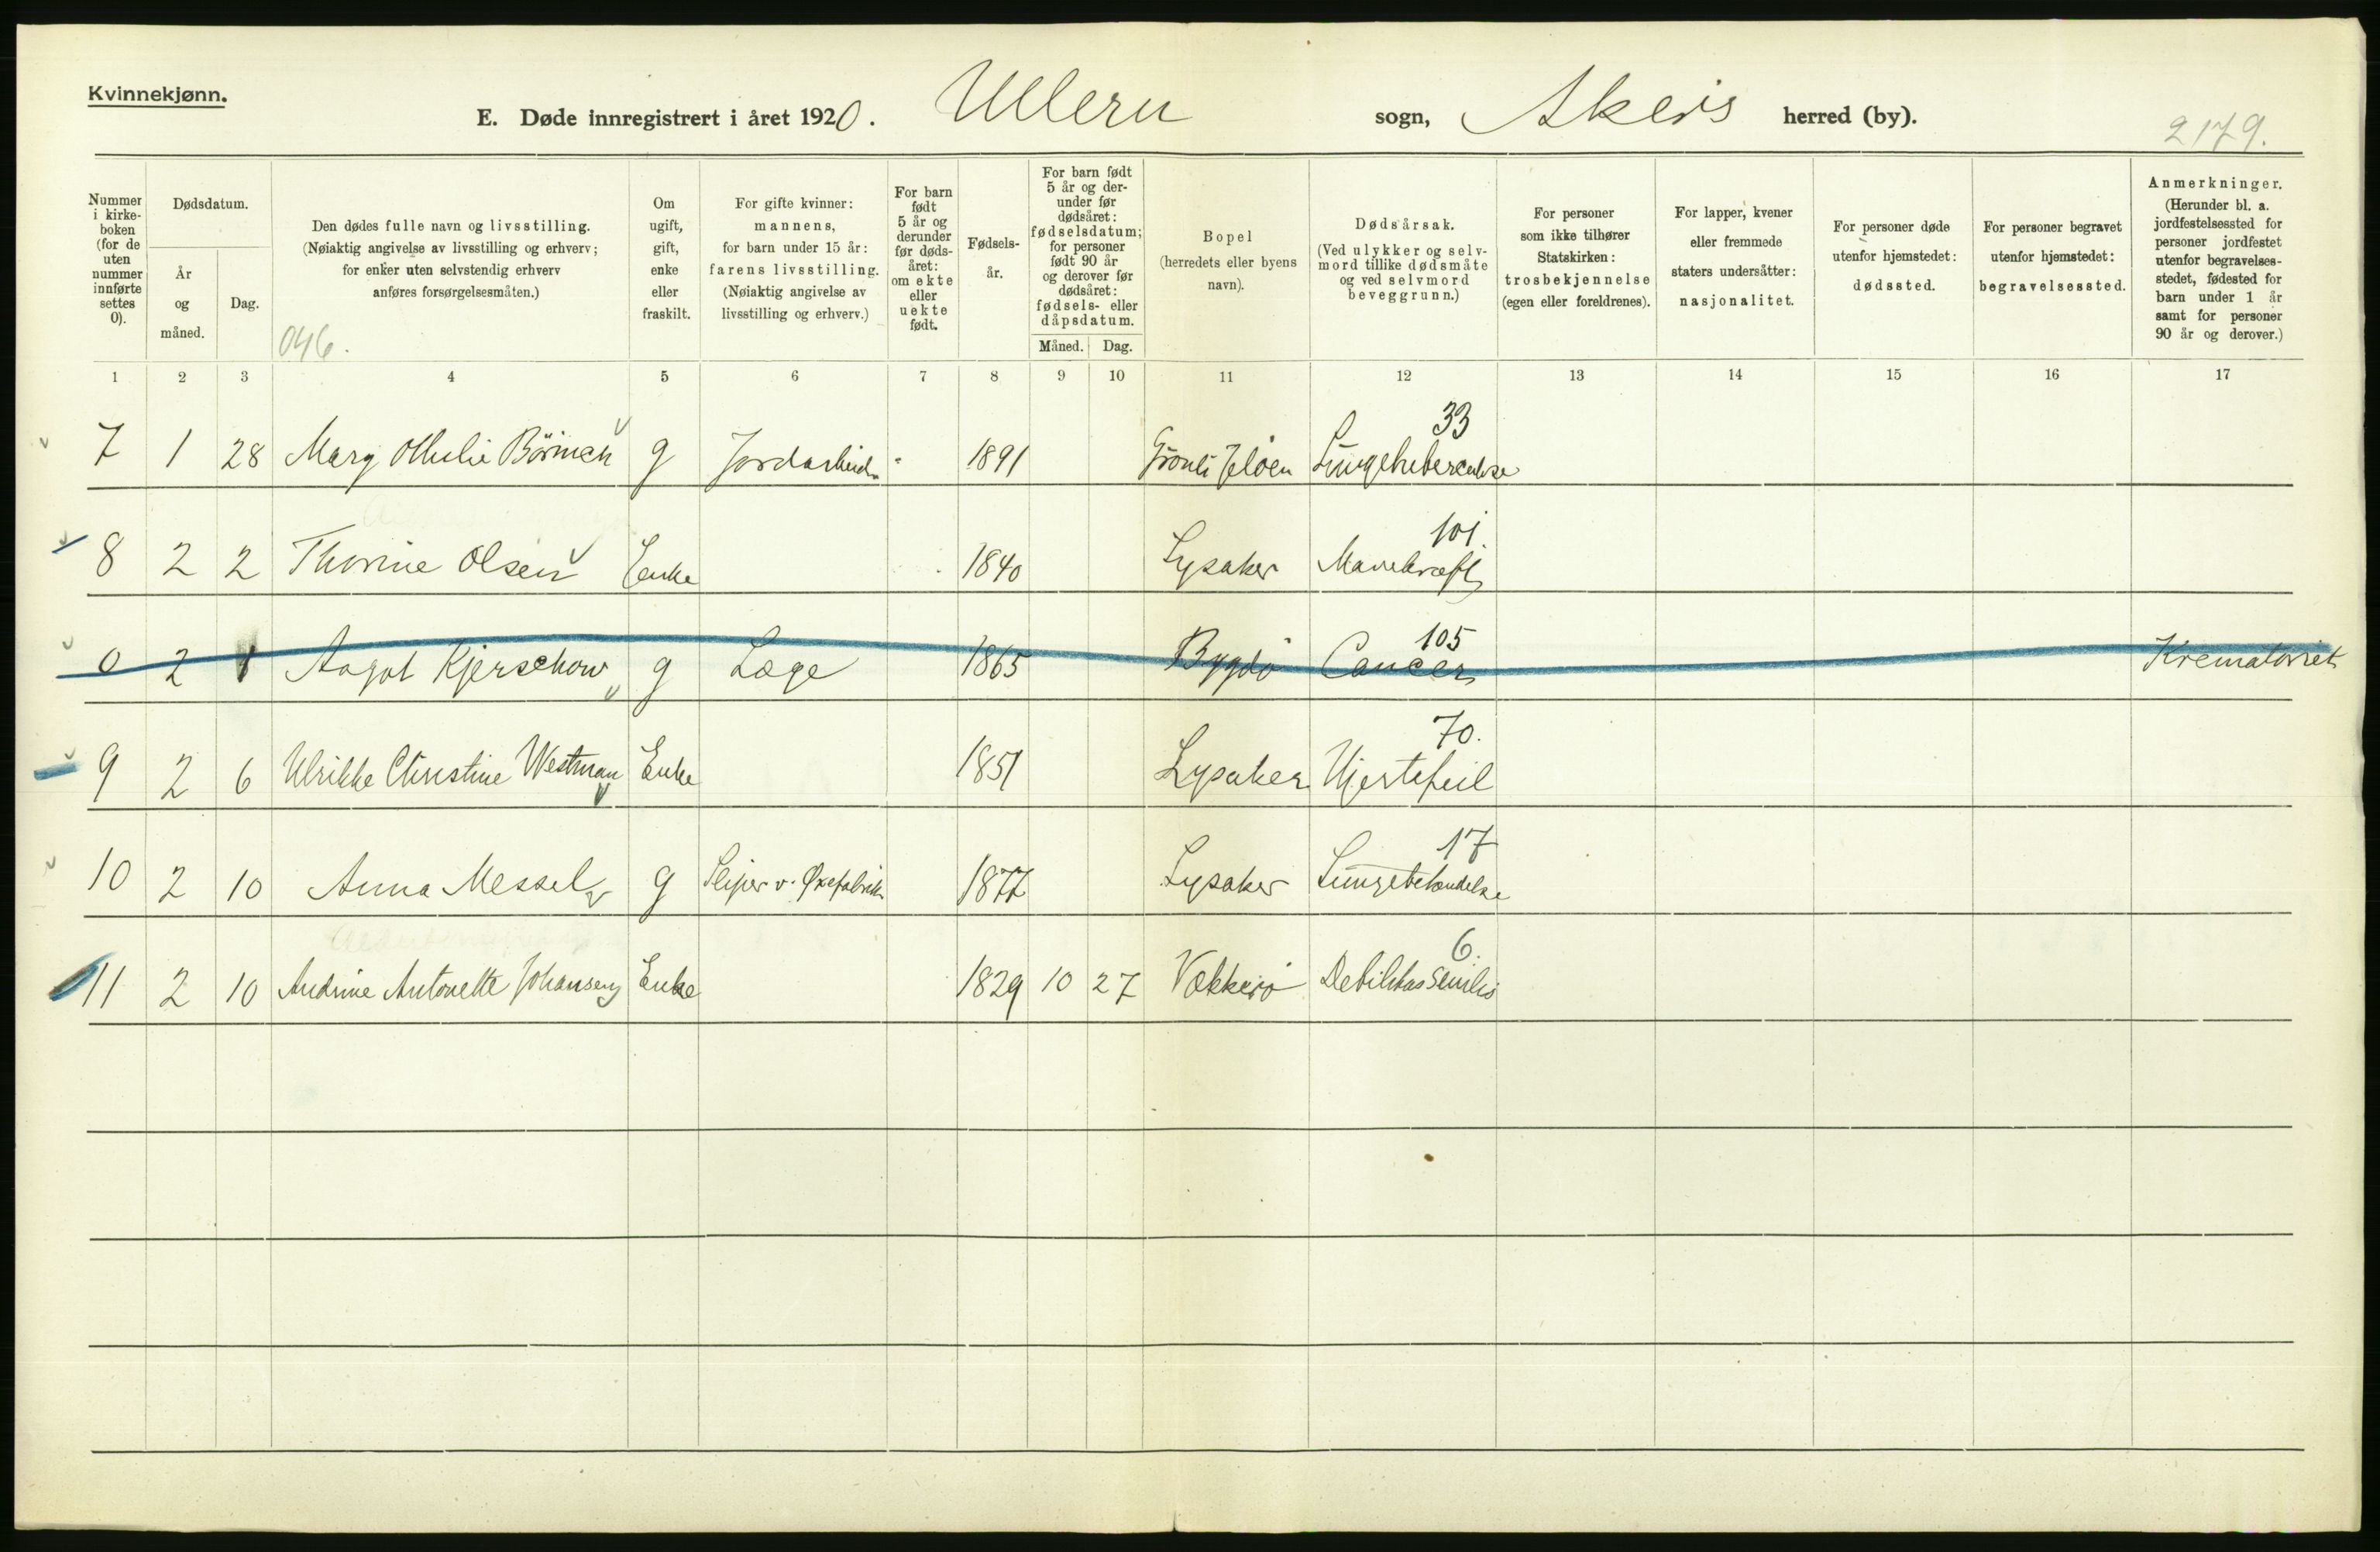 Kvinnekjønn.
E. Døde innregistrert i året 1920. Ullern sogn, Akers herred (by). 2179.
Nummer i kirkeboken (for de uten nummer innførte settes 0).
Dødsdatum.
År og måned.
Dag.
Den dødes fulle navn og livsstilling.
(Nøiaktig angivelse av livsstilling og erhverv;
for enker uten selvstendig erhverv
anføres forsørgelsesmåten.)
046.
Om ugift, gift, enke eller fraskilt.
For gifte kvinner:
mannens,
for barn under 15 år:
farens livsstilling.
(Nøiaktig angivelse av
livsstilling og erhverv.)
For barn født 5 år og derunder før dødsåret: om ekte eller uekte født.
Fødselsår.
For barn født 5 år og derunder før dødsåret: fødselsdatum; for personer født 90 år og derover før dødsåret: fødsels- eller dåpsdatum.
Måned. Dag.
Bopel
(herredets eller byens
navn).
Dødsårsak.
(Ved ulykker og selvmord tillike dødsmåte
og ved selvmord
beveggrunn.)
For personer
som ikke tilhører
Statskirken:
trosbekjennelse
(egen eller foreldrenes).
For lapper, kvener
eller fremmede
staters undersåtter:
nasjonalitet.
For personer døde
utenfor hjemstedet:
dødssted.
For personer begravet
utenfor hjemstedet:
begravelsessted.
Anmerkninger.
(Herunder bl. a.
jordfestelsessted for
personer jordfestet
utenfor begravelsesstedet, fødested for
barn under 1 år
samt for personer
90 år og derover.)
1 2 3 4 5 6 7 8 9 10 11 12 13 14 15 16 17
33
7 1 28 g 1891 Lungetuberculose
101.
8 2 2 Thorine Olsen Enke 1840 Lysaker Mavekræft
105
0 2 1 Aagot Kjerschow g Læge 1865 Bygdø Cancer Krematoriet
70.
9 2 6 Ulrikke Christine Westman Enke 1851 Lysaker Hjertefeil
17
10 2 10 Anna Messel g Sliper v. Øxefabrik 1877 Lysaker
6.
11 2 10 Andrine Antonette Johansen Enke 1829 10 27 Vækkerø Debilitas senilis